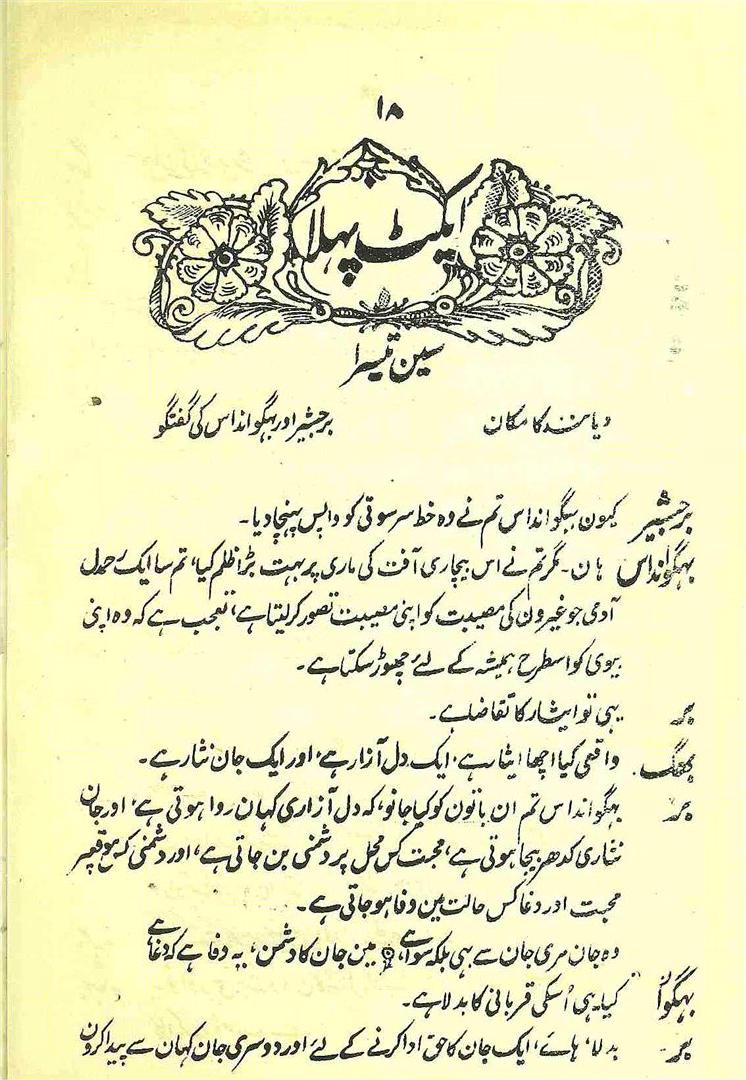 ۱۸
ایکٹ پہلا
سین تیسرا
دیانند کا مکان برجشیر اور بہگوانداس کی گفتگو
برجشیر کیون بہگوانداس تم نے وہ خط سرسوتی کو واپس پہنچا دیا۔
بہگوانداس ہان۔ مگر تم نے اس بیچاری آفت کی ماری پر بہت بڑا ظلم کیا، تم سا ایک رحمدل
آدمی جو غیرون کی مصیبت کو اپنی مصیبت تصور کر لیتا ہے، تعجب ہے کہ وہ اپنی
بیوی کو اسطرح ہمیشہ کے لئے چھوڑ سکتا ہے۔
بر یہی تو ایثار کا تقاضا ہے۔
بھگ۔ واقعی کیا اچھا ایثار ہے، ایک دل آزار ہے، اور ایک جان نثار ہے۔
بر بہگوانداس تم ان باتون کو کیا جانو، کہ دل آزاری کہان روا ہوتی ہے، اور جان
نثاری کدھر بیجا ہوتی ہے، محبت کس محل پر دشمنی بن جاتی ہے، اور دشمنی کس موقعپر
محبت اور دغا کس حالت مین وفا ہو جاتی ہے۔
وہ جان مری جان سے ہی بلکہ سوا ہے، مین جان کا دشمن، یہ وفا ہے کہ دغا ہے
بہگوا کیا یہی اُسکی قربانی کا بدلا ہے۔
بر۔ بدلا، ہائے، ایک جان کا حق ادا کرنے کے لئے اور دوسری جان کہان سے پیدا کرون